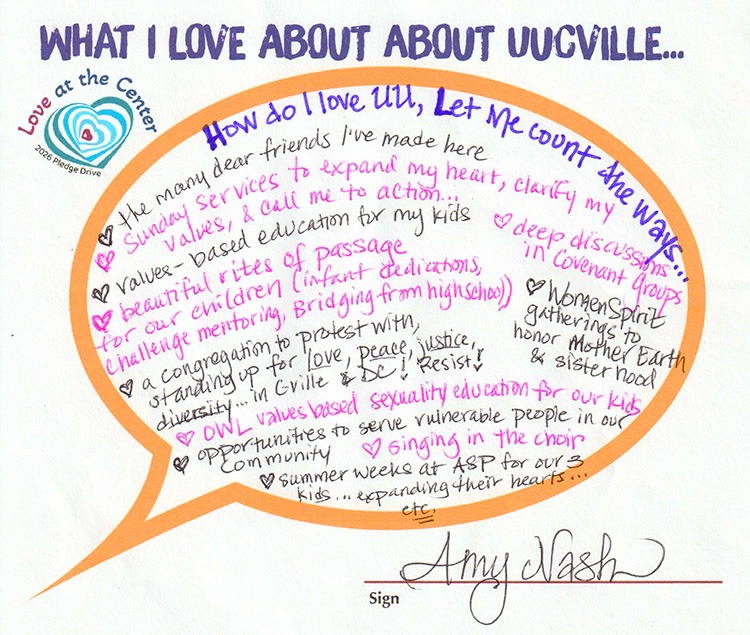 WHAT I LOVE ABOUT ABOUT UUCVILLE...
Love at the Center
2026 Pledge Drive
How do I love UU, Let Me count the ways...
the many dear friends I've made here
Sunday services to expand my heart, clarify my
values, & call me to action...
values-based education for my kids
deep discussions
in Covenant Groups
beautiful rites of passage
for our children (infant dedications,
Challenge mentoring, Bridging from highschool)
WomenSpirit
gatherings to
honor Mother Earth
& sisterhood
a congregation to protest with,
standing up for love, peace, justice,
diversity... in C-ville & DC! Resist!
OWL values based sexuality education for our kids
opportunities to serve vulnerable people in our
community
singing in the choir
summer weeks at ASP for our 3
kids... expanding their hearts...
etc.
Amy Nash
Sign